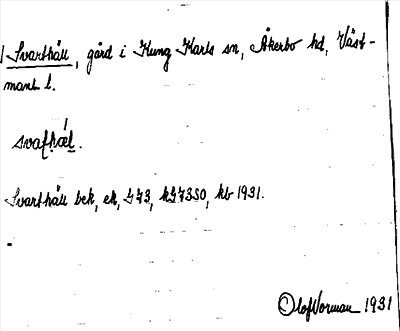 Svarthäll, gård i Kung Karls sn, Åkerbo hd, Väst-
manl. l.
svafhæl.
Svarthäll bek, ek, J73, kJ7350, kb 1931.
Olof Norman 1931